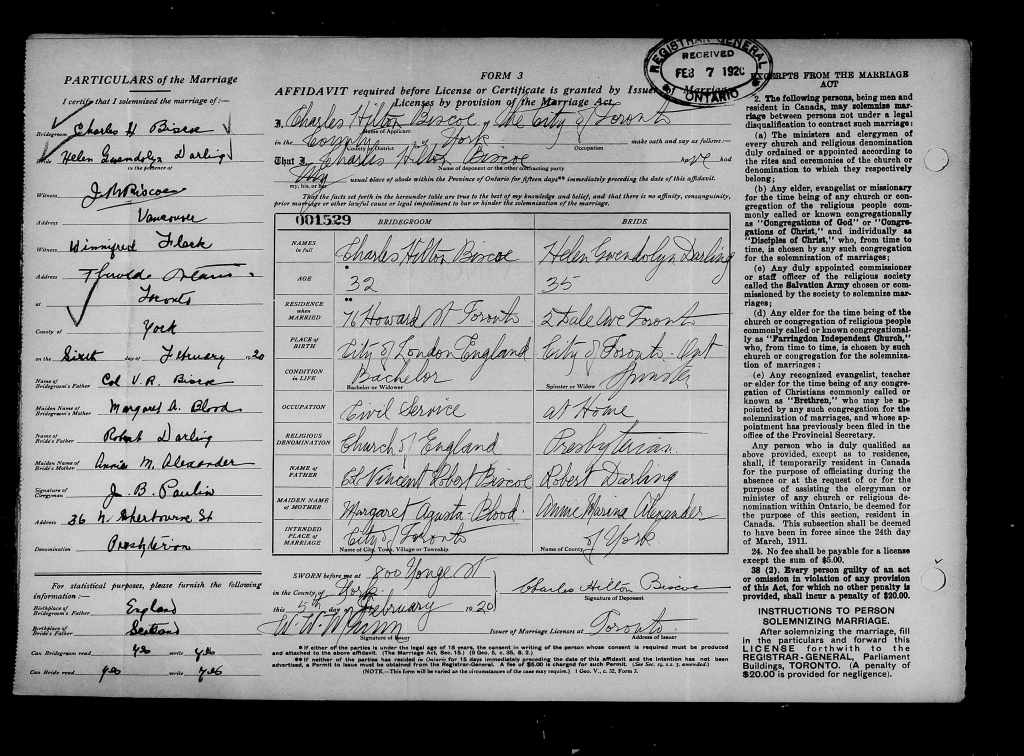 REGISTRAR GENERAL
RECEIVED
FEB 7 1920
ONTARIO
PARTICULARS of the Marriage
I certify that I solemnized the marriage of:—
Bridegroom Charles H Biscoe
Helen Gwendolyn Darling
in the presence of
Witness
Address Vancouver
Witness Winnifred
Address
at Toronto
County of York
on the Sixth day of February 1920
Name of Bridegroom's Father Col V. R. Biscoe
Maiden Name of Bridegroom's Mother Margaret A. Blood
Name of Bride's Father Robert Darling
Maiden Name of Bride's Mother Annie M. Alexander
Signature of Clergyman J. B. Paulin
Address 36 N. Sherbourne St
Denomination Presbyterian
For statistical purposes, please furnish the following information:—
Birthplace of Bridegroom's Father England
Birthplace of Bride's Father Scotland
Can Bridegroom read yes write yes
Can Bride read yes write yes
FORM 3
AFFIDAVIT required before License or Certificate is granted by Issuer of Marriage
Licenses by provision of the Marriage Act.
I, Charles Hilton Biscoe of the City of Toronto
Name of Applicant
in the County of York make oath and say as follows:—
County or District Occupation
That I Charles Hilton Biscoe have had
Name of deponent or the other contracting party
my usual place of abode within the Province of Ontario for fifteen days** immediately preceding the date of this affidavit.
my, his, or her
That the facts set forth in the hereunder table are true to the best of my knowledge and belief, and that there is no affinity, consanguinity,
prior marriage or other lawful cause or legal impediment to bar or hinder the solemnization of the marriage.
001529 BRIDEGROOM BRIDE
NAMES in full Charles Hilton Biscoe Helen Gwendolyn Darling
AGE * 32 35
RESIDENCE when MARRIED ** 76 Howard St Toronto 2 Dale Ave Toronto
PLACE OF BIRTH City of London England City of Toronto - Ont
CONDITION IN LIFE Bachelor Spinster
Bachelor or Widower Spinster or Widow
OCCUPATION Civil Service at Home
RELIGIOUS DENOMINATION Church of England Presbyterian
NAME OF FATHER Col Vincent Robert Biscoe Robert Darling
MAIDEN NAME OF MOTHER Margaret Agusta Blood. Annie Marina Alexander
INTENDED PLACE OF MARRIAGE City of Toronto of York
Name of City, Town, Village or Township Name of County
SWORN before me at 800 Yonge St
in the County of York
this 5th day of February 1920
Charles Hilton Biscoe
Signature of Deponent
Signature of Issuer
Issuer of Marriage Licenses at Toronto.
Address of Issuer
* If either of the parties is under the legal age of 18 years, the consent in writing of the person whose consent is required must be produced
and attached to the above affidavit. (The Marriage Act, Sec. 15.)
** If neither of the parties has resided in Ontario for 15 days immediately preceding the date of this affidavit and the intention has not been
advertised, a Permit to issue must be obtained from the Registrar-General. A fee of $5.00 is charged for such Permit.
(NOTE.—This form will be varied as the circumstances of the case may require.) 1 Geo. V., c. 32, Form 3.
EXCERPTS FROM THE MARRIAGE
ACT
2. The following persons, being men and
resident in Canada, may solemnize mar-
riage between persons not under a legal
disqualification to contract such marriage:
(a) The ministers and clergymen of
every church and religious denomination
duly ordained or appointed according to
the rites and ceremonies of the church or
denomination to which they respectively
belong;
(b) Any elder, evangelist or missionary
for the time being of any church or con-
gregation of the religious people com-
monly called or known congregationally
as "Congregations of God" or "Congre-
gations of Christ," and individually as
"Disciples of Christ," who, from time to
time, is chosen by any such congregation
for the solemnization of marriages;
(c) Any duly appointed commissioner
or staff officer of the religious society
called the Salvation Army chosen or com-
missioned by the society to solemnize mar-
riages;
(d) Any elder for the time being of the
church or congregation of religious people
commonly called or known congregational-
ly as "Farringdon Independent Church,"
who, from time to time, is chosen by such
church or congregation for the solemniza-
tion of marriages;
(e) Any recognized evangelist, teacher
or elder for the time being of any congre-
gation of Christians commonly called or
known as "Brethren," who may be ap-
pointed by any such congregation for the
solemnization of marriages, and whose ap-
pointment has previously been filed in the
office of the Provincial Secretary.
Any person who is duly qualified as
above provided, except as to residence,
shall, if temporarily resident in Canada
for the purpose of officiating during the
absence or at the request of or for the
purpose of assisting the clergyman or
minister of any church or religious de-
nomination within Ontario, be deemed for
the purpose of this section, resident in
Canada. This subsection shall be deemed
to have been in force since the 24th day
of March, 1911.
24. No fee shall be payable for a license
except the sum of $5.00.
38 (2). Every person guilty of an act
or omission in violation of any provision
of this Act, for which no other penalty is
provided, shall incur a penalty of $20.00.
INSTRUCTIONS TO PERSON
SOLEMNIZING MARRIAGE.
After solemnizing the marriage, fill
in the particulars and forward this
LICENSE forthwith to the
REGISTRAR-GENERAL, Parliament
Buildings, TORONTO. (A penalty of
$20.00 is provided for negligence).